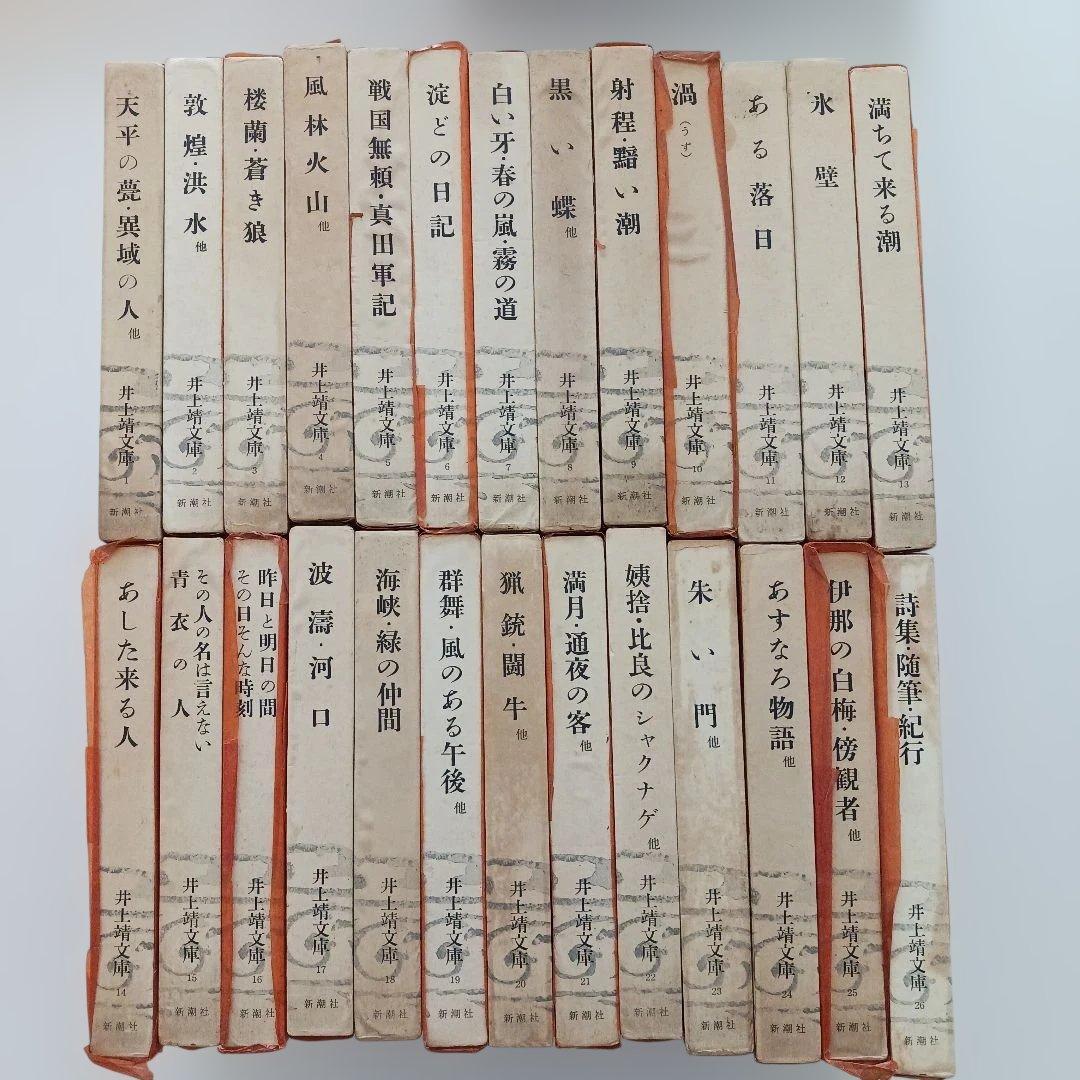 天平の甍・異域の人 他
井上靖文庫 1
新潮社
敦煌・洪水 他
井上靖文庫 2
新潮社
楼蘭・蒼き狼
井上靖文庫 3
新潮社
風林火山 他
井上靖文庫 4
新潮社
戦国無頼・真田軍記
井上靖文庫 5
新潮社
淀どの日記
井上靖文庫 6
新潮社
白い牙・春の嵐・霧の道
井上靖文庫 7
新潮社
黒い蝶 他
井上靖文庫 8
新潮社
射程・黯い潮
井上靖文庫 9
新潮社
渦(うず)
井上靖文庫 10
新潮社
ある落日
井上靖文庫 11
新潮社
氷壁
井上靖文庫 12
新潮社
満ちて来る潮
井上靖文庫 13
新潮社
あした来る人
井上靖文庫 14
新潮社
その人の名は言えない
青衣の人
井上靖文庫 15
新潮社
昨日と明日の間
その日そんな時刻
井上靖文庫 16
新潮社
波濤・河口
井上靖文庫 17
新潮社
海峡・緑の仲間
井上靖文庫 18
新潮社
群舞・風のある午後 他
井上靖文庫 19
新潮社
猟銃・闘牛 他
井上靖文庫 20
新潮社
満月・通夜の客 他
井上靖文庫 21
新潮社
姨捨・比良のシャクナゲ 他
井上靖文庫 22
新潮社
朱い門 他
井上靖文庫 23
新潮社
あすなろ物語 他
井上靖文庫 24
新潮社
伊那の白梅・傍観者 他
井上靖文庫 25
新潮社
詩集・随筆・紀行
井上靖文庫 26
新潮社